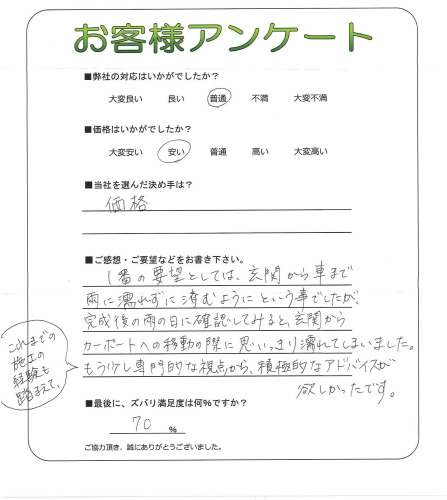 お客様アンケート
■弊社の対応はいかがでしたか？
大変良い 良い 普通 不満 大変不満
■価格はいかがでしたか？
大変安い 安い 普通 高い 大変高い
■当社を選んだ決め手は？
価格
■ご感想・ご要望などをお書き下さい。
1番の要望としては、玄関から車まで
雨に濡れずに済むようにという事でしたが、
完成後の雨の日に確認してみると、玄関から
カーポートへの移動の際に思いっきり濡れてしまいました。
これまでの
施工の
経験も
踏まえて、
もう少し専門的な視点から、積極的なアドバイスが
欲しかったです。
■最後に、ズバリ満足度は何%ですか？
70 %
ご協力頂き、誠にありがとうございました。